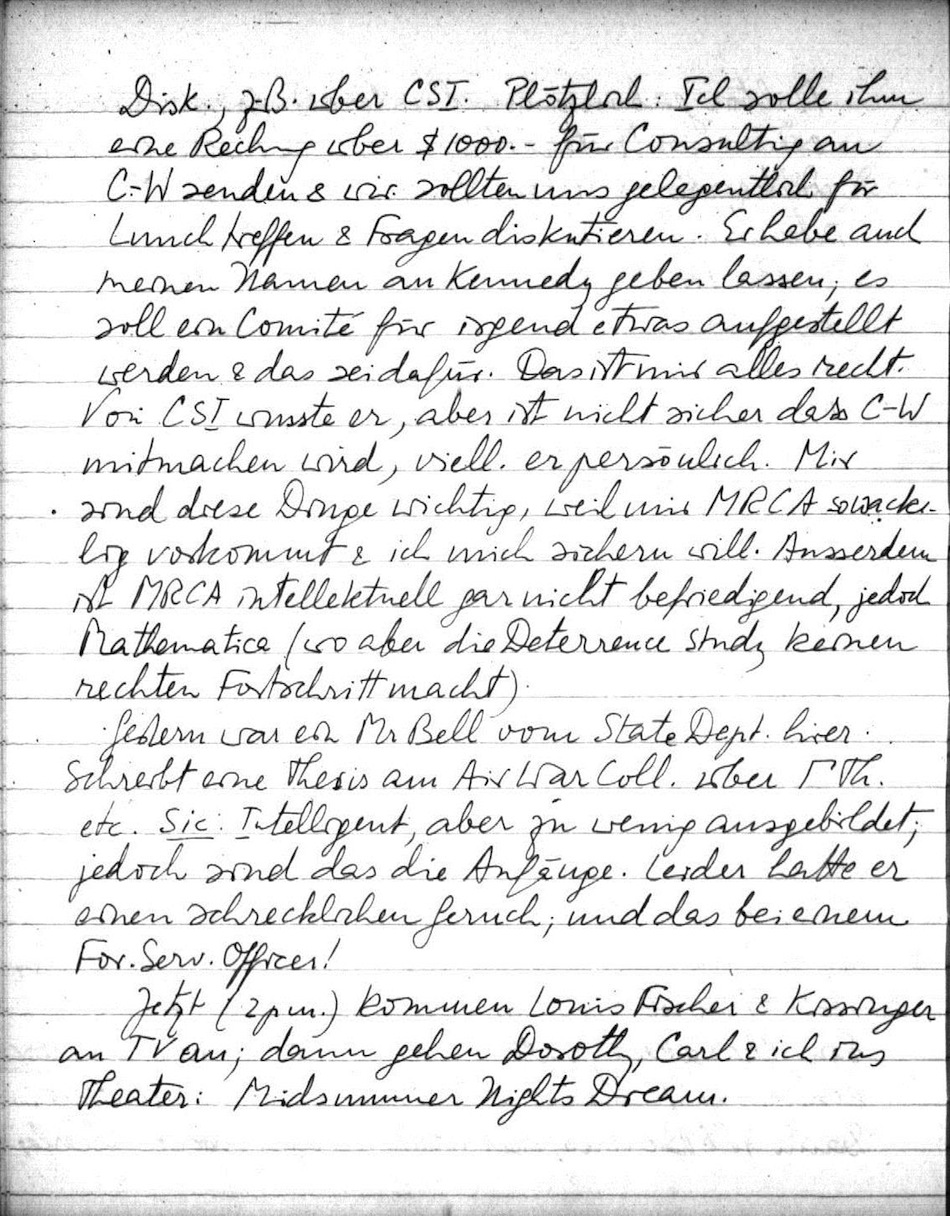 Disk., z.B. über CSI. Plötzlich: Ich solle ihm
eine Rechng über $1000.- für Consulting an
C-W senden & wir sollten uns gelegentlich für
Lunch treffen & Fragen diskutieren. Er habe auch
meinen Namen an Kennedy geben lassen; es
soll ein Comité für irgend etwas aufgestellt
werden & das sei dafür. Das ist mir alles recht.
Von CSI wusste er, aber ist nicht sicher dass C-W
mitmachen wird, viell. er persönlich. Mir
sind diese Dinge wichtig, weil mir MRCA so wacke-
lig vorkommt & ich mich sichern will. Ausserdem
ist MRCA intellektuell gar nicht befriedigend, jedoch
Mathematica (wo aber die Deterrence Study keinen
rechten Fortschritt macht).
Gestern war ein Mr Bell vom State Dept. hier.
Schreibt eine Thesis am Air War Coll. über Γ Th.
etc. Sic: Intelligent, aber zu wenig ausgebildet;
jedoch sind das die Anfänge. Leider hatte er
einen schrecklichen Geruch; und das bei einem
For. Serv. Officer!
Jetzt (2 pm.) kommen Louis Fischer & Kissinger
an TV an; dann gehen Dorothy, Carl & ich ins
Theater: Midsummer Nights Dream.